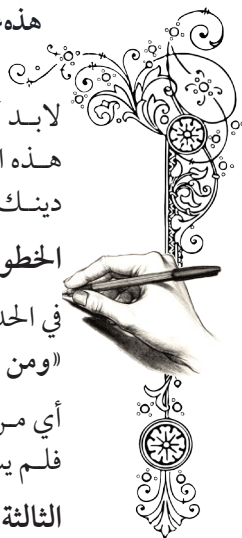 هذه
لابد
هذه ا
دينك
الخطو
في الحد
«ومن
أي من
فلم ي
الثالثة